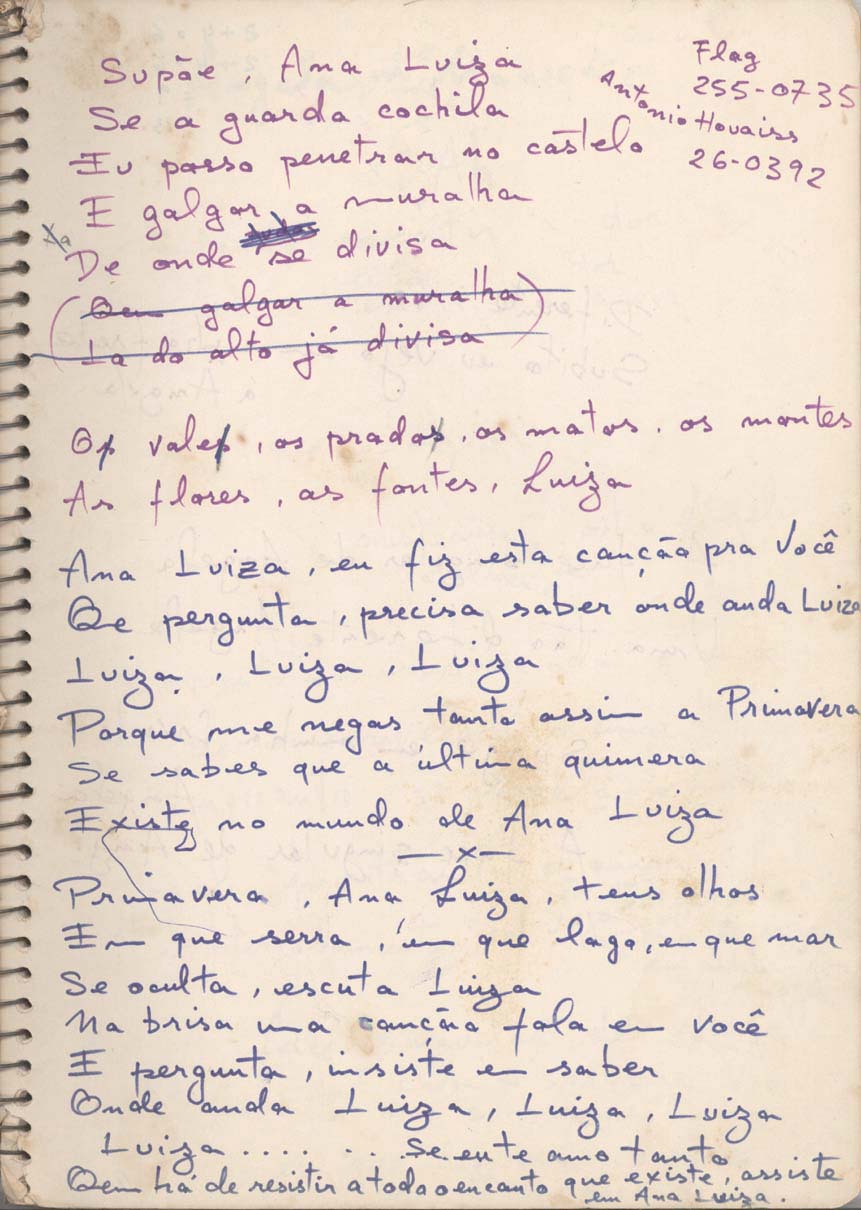 Supõe, Ana Luiza
Se a guarda cochila
Eu posso penetrar no castelo
E galgar a muralha
De onde se divisa
(Ou galgar a muralha)
La do alto já divisa
Flag
255-0735
Antonio Houaiss
26-0392
Os vales, os prados, os matos, os montes
As flores, as fontes, Luiza
Ana Luiza, eu fiz esta canção pra Você
Qe pergunta, precisa saber onde anda Luiza
Luiza, Luiza, Luiza
Porque me negas tanto assim a Primavera
Se sabes que a última quimera
Existe no mundo de Ana Luiza
—x—
Primavera, Ana Luiza, teus olhos
Em que serra, em que lago, em que mar
Se oculta, escuta Luiza
Na brisa uma canção fala em você
E pergunta, insiste em saber
Onde anda Luiza, Luiza, Luiza
Luiza .... .. Se eu te amo tanto
Qem há de resistir a todo o encanto que existe, assiste
em Ana Luiza.